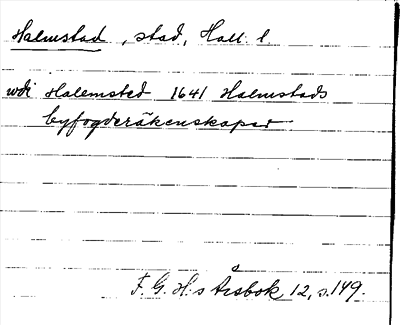 Halmstad, stad, Hall. l
wdi Halemsted 1641 Halmstads
byfogderäkenskaper
F. G. H:s Årsbok 12, s. 149.